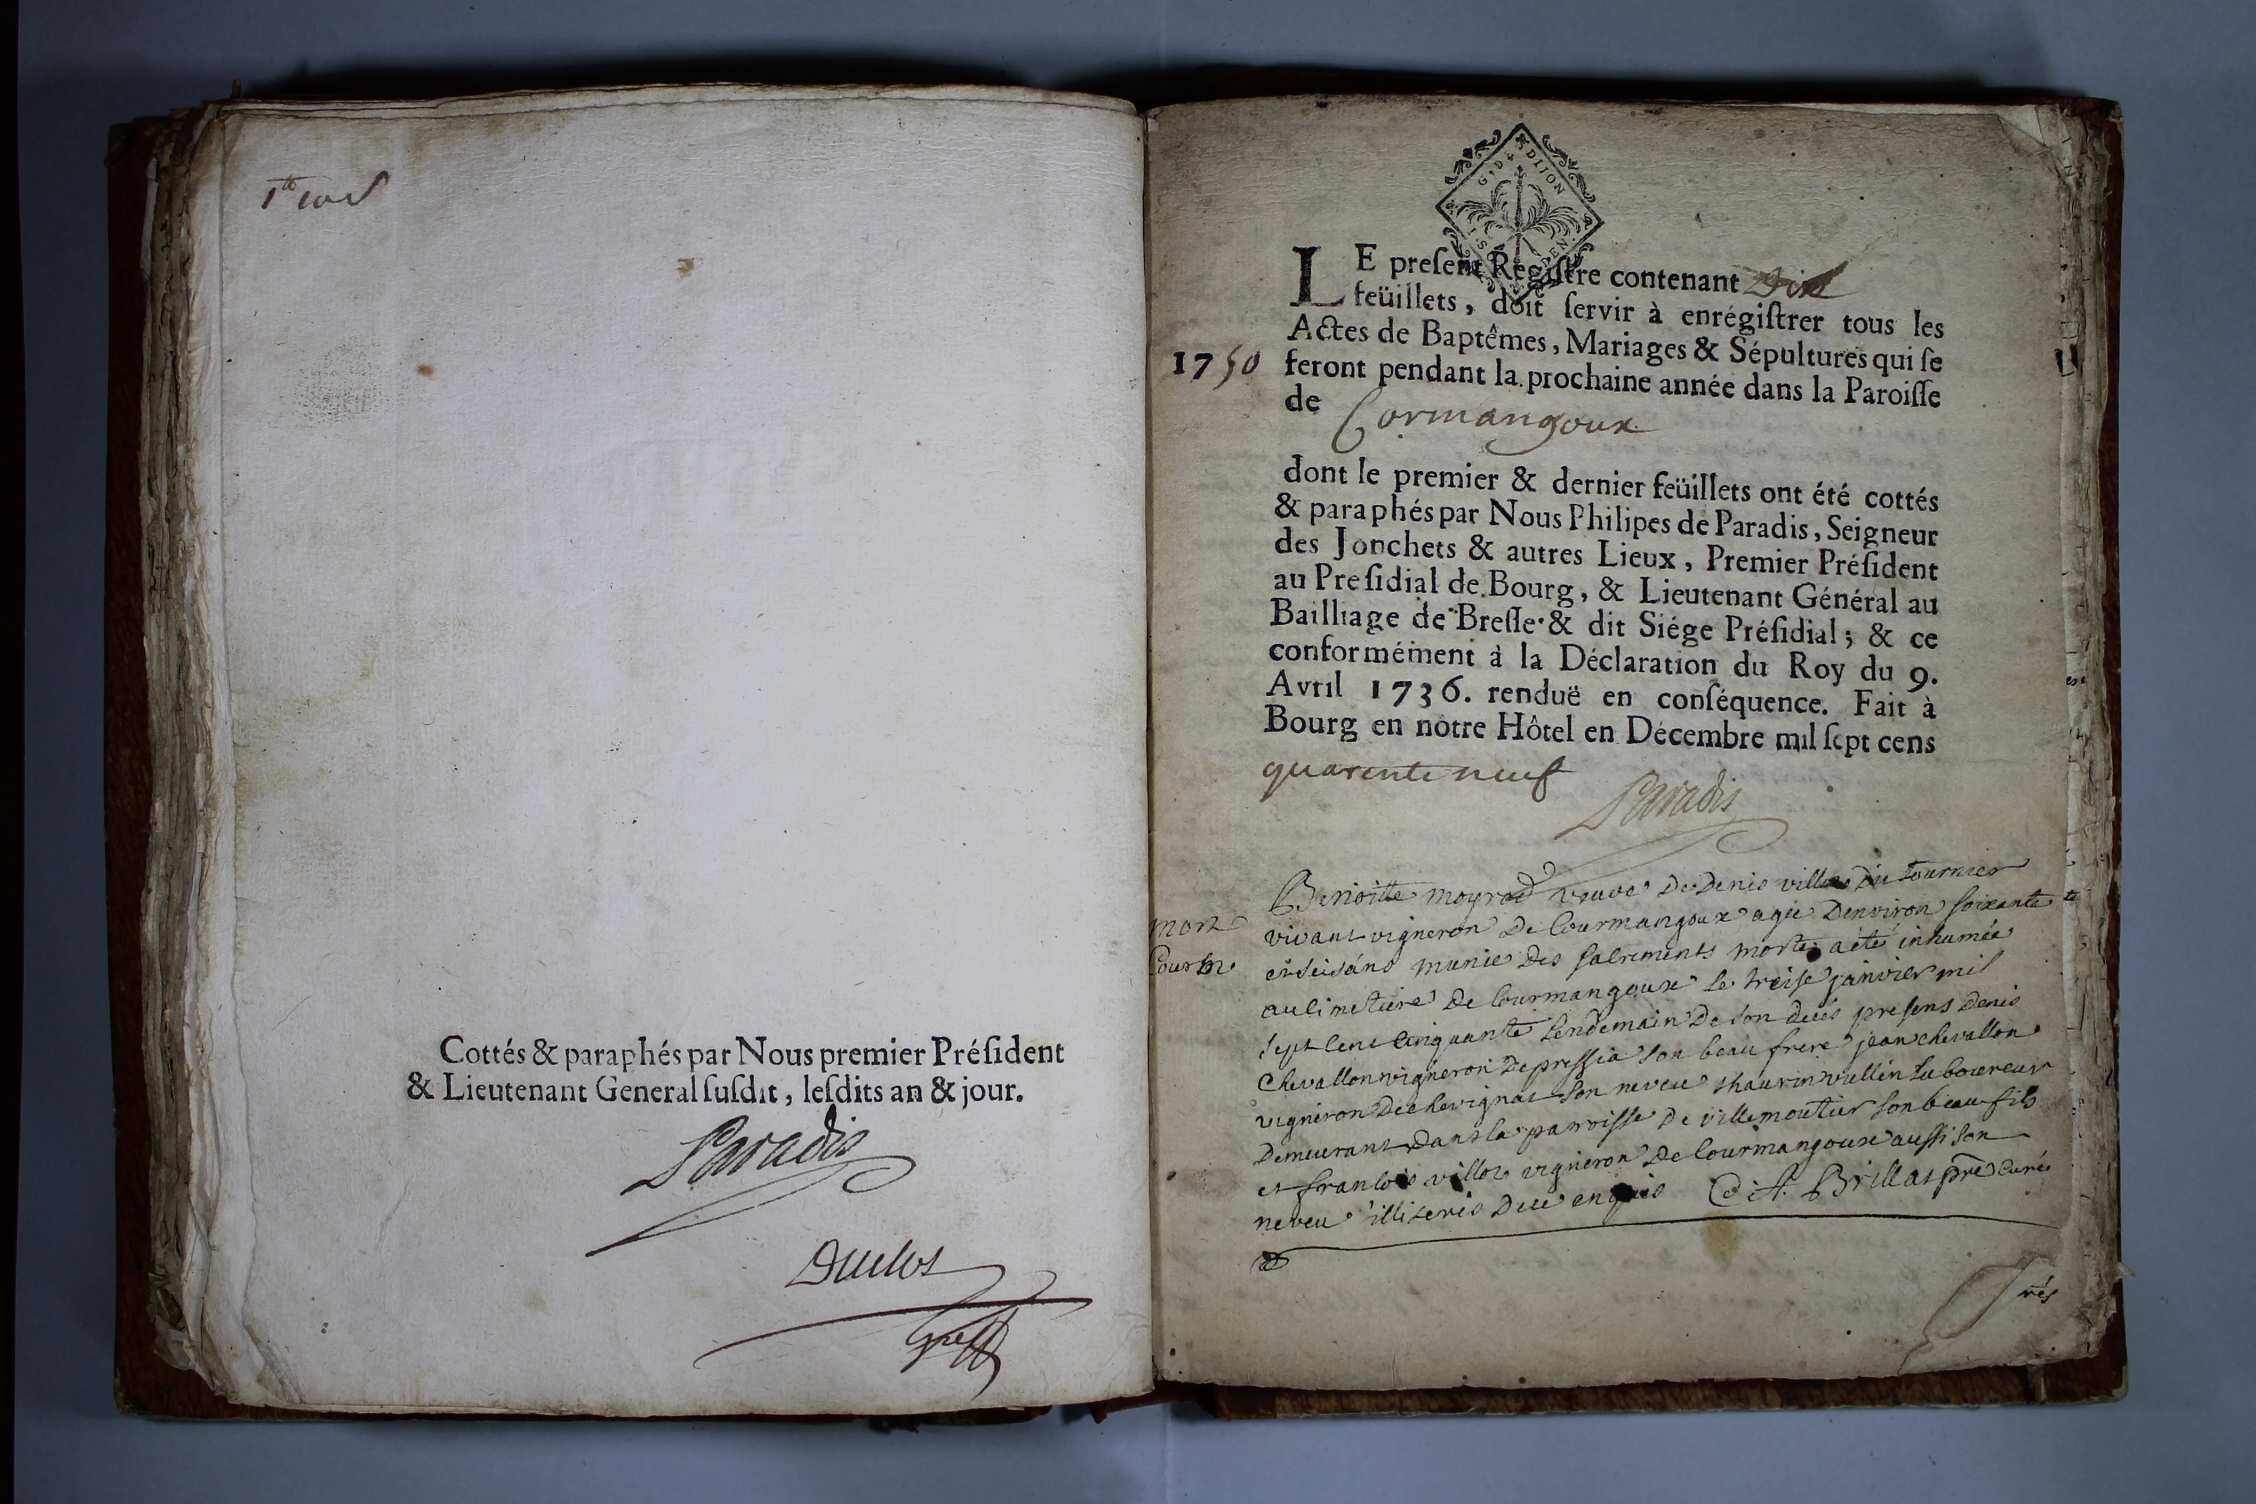 Cottés & paraphés par Nous premier Préſident
& Lieutenant General ſuſdit, leſdits an & jour.
Paradis
Duclos
G. DE DIJON
LE preſent Regiſtre contenant Dix
feüillets, doit ſervir à enrégiſtrer tous les
Actes de Baptêmes, Mariages & Sépultures qui ſe
1750 feront pendant la prochaine année dans la Paroiſſe
de Cormangoux
dont le premier & dernier feüillets ont été cottés
& paraphés par Nous Philipes de Paradis, Seigneur
des Jonchets & autres Lieux, Premier Préſident
au Preſidial de Bourg, & Lieutenant Général au
Bailliage de Breſſe & dit Siége Préſidial; & ce
conformément à la Déclaration du Roy du 9.
Avril 1736. renduë en conſéquence. Fait à
Bourg en nôtre Hôtel en Décembre mil ſept cens
quarente neuf
Paradis
Benoitte moyrod veuve De Denis villoz Dit tournier
vivant vigneron De Courmangoux agée Denviron soixante
mort
et seis ans munie Des sacrements morte a été inhumée
au cimetiere De Courmangoux le treise janvier mil
sept cent cinquante lendemain De son decés presens Denis
Chevallon vigneron De pressia son beau frere jean chevallon
vigneron De chevignat son neveu vullin laboureur
Demeurant dans la parroisse De villemoutier son beau fils
et francois villoz vigneron De Courmangoux aussi son
neveu illiterés De ce enquis C. A. Brillat prê curé